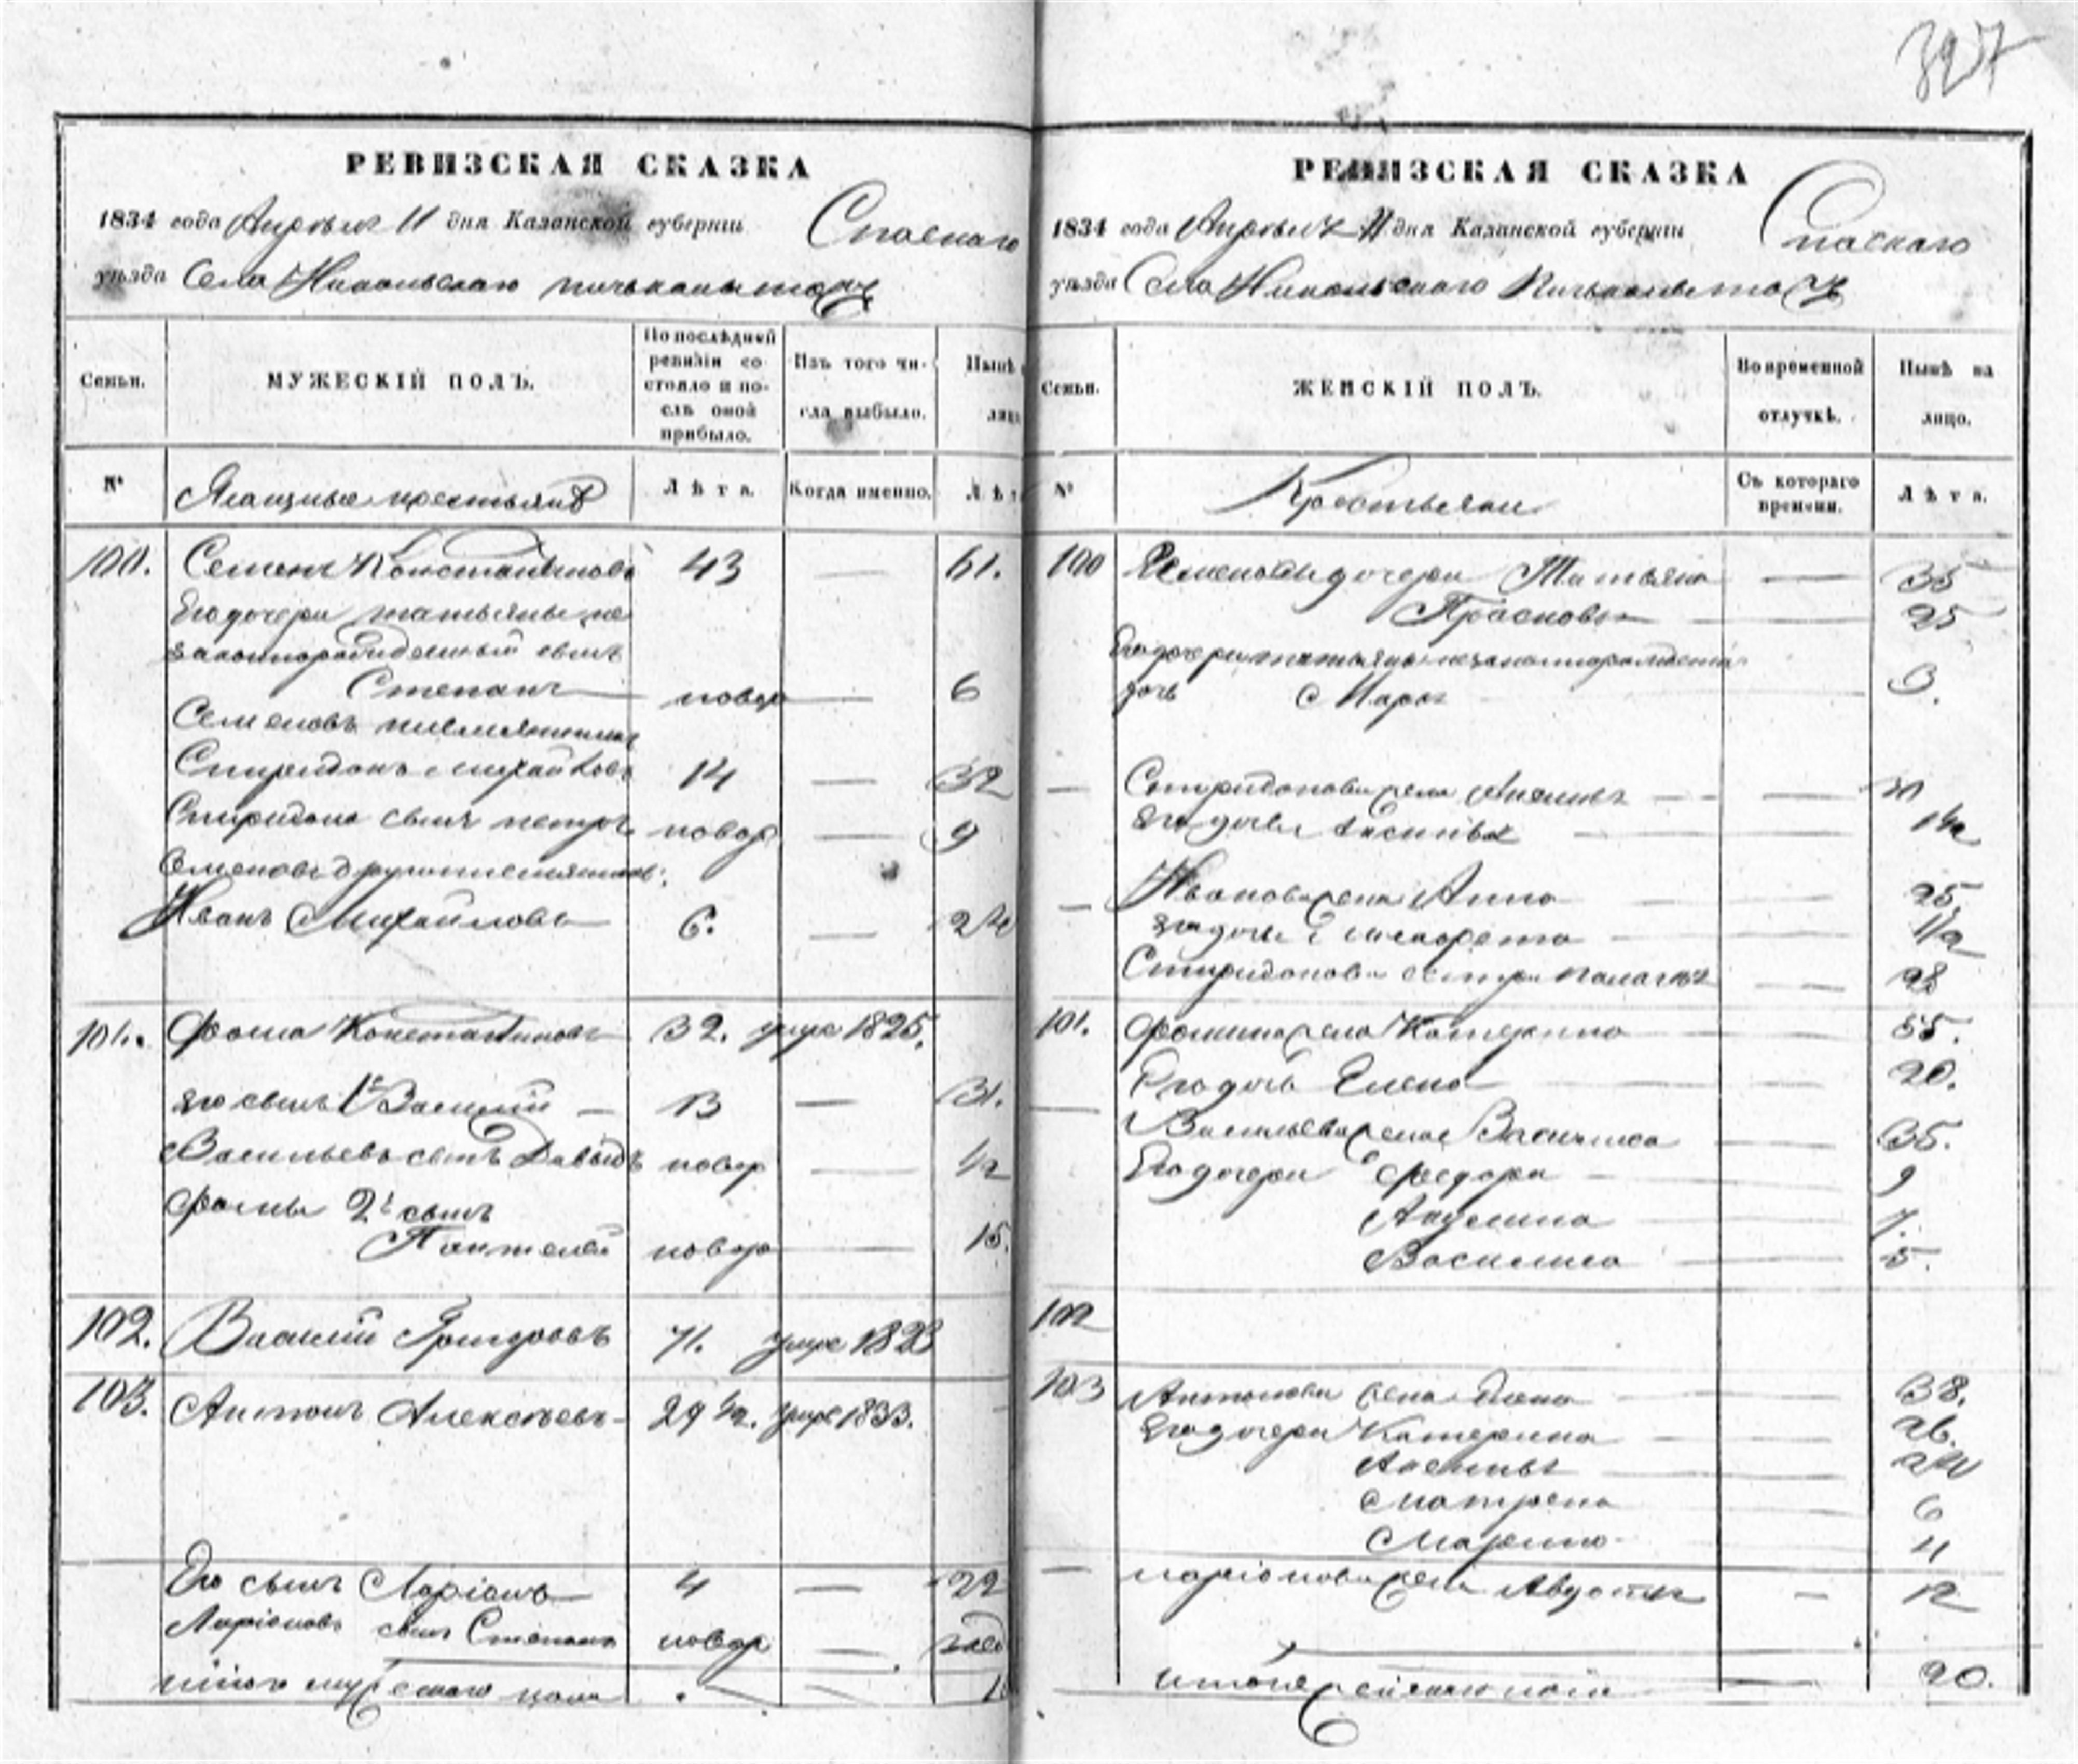 327
РЕВИЗСКАЯ СКАЗКА
1834 года Апреля 11 дня Казанской губернии Спаскаго
уѣзда Села Никольскаго
Семьи.
МУЖЕСКІЙ ПОЛЪ.
По послѣдней ревизіи состояло и послѣ оной прибыло.
Изъ того числа выбыло.
Нынѣ
лицо
№
Лѣта.
Когда именно.
Лѣт
100. Семенъ Константиновъ 43 — 61.
Его дочери татьяны не
законнорожденный сынъ
Степанъ — новор — 6
Семеновъ племянникъ
Спиридонъ Михайловъ 14 — 32
Спиридона сынъ петръ новор — 9
Семеновъ другой племянникъ
Иванъ Михайловъ 6. — 24
101. Фома Константиновъ 32. умре 1825.
Его сынъ 1й Василий — 13 — 31.
Васильевъ сынъ Давыдъ новор — 1/2
Фомы 2й сынъ
Пантелей новор — 15.
102. Василий Григорьевъ 71. умре 1823
103. Антонъ Алексѣевъ 29 1/2. умре 1833.
Его сынъ Ларіонъ 4 — 22
Ларіоновъ сынъ Степанъ новор —
итого мужескаго пола
РЕВИЗСКАЯ СКАЗКА
1834 года Апреля 11 дня Казанской губернии Спаскаго
уѣзда Села Никольскаго
Семьи.
ЖЕНСКІЙ ПОЛЪ.
Во временной отлучкѣ.
Нынѣ на лицо.
№
Крестьяни
Съ котораго времени.
Лѣта.
100 Семеновы дочери Татьяна — 35
Прасковья — 25
Его дочери татьяны незаконнорожденна
дочь Марья 3.
— Спиридонова жена —
Его дочь —
— Иванова жена Анна — 25
Его дочь —
Спиридонова сестра палагея — 28
101. Фомина жена Катерина — 55.
Его дочь Елена — 20.
— Васильева жена Василиса — 35.
Его дочери Федора — 9
Акулина — 7.
Василиса — 5.
102
103 Антонова жена — 38.
Его дочери Катерина — 26.
Матрена — 6
Марина — 11
— Ларіонова жена Авдотья —
итого женскаго пола — 20.